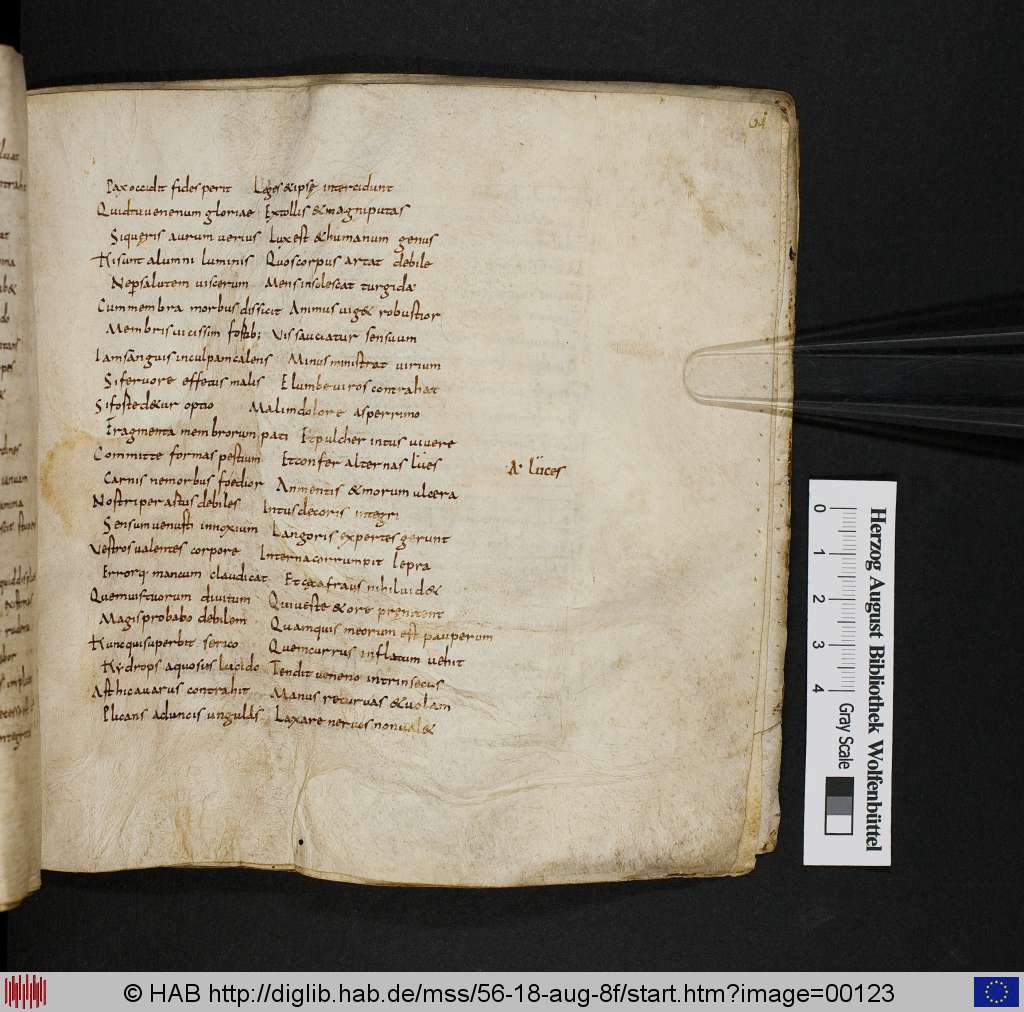 61
Pax occidit fides perit Leges &ipsę intercidunt
Quidtu uenenum gloriae Extollis &magni putas
Si quęris aurum uerius Lux est &humanum genus
Hi sunt alumni luminis Quos corpus artat debile
Ne per salutem uiscerum Mens insolescat turgida
Cum membra morbus dissicit Animus uig& robustior
Membris uicissim fortib; Vis sauciatur sensuum
Iam sanguis inculpam calens Minus ministrat uirium
Si feruore effetus malis Elumbe uiros contrahat
Si forte d&ur optio Malim dolore asperrimo
Fragmenta membrorum pati Et pulcher intus uiuere
Committe formas pestium Et confer alternas lues
A lüces
Carnis ne morbus foedior An mentis &morum ulcera
Nostri per artus debiles Intus decoris integri
Sensum uenusti innoxium Langoris expertes gerunt
Vestros ualentes corpore Interna corrumpit lepra
Errorq; mancum claudicat Et cęca fraus nihil uid&
Quemuis tuorum diuitum Qui ueste &ore prenitent
Magis probabo debilem Quam quis meorum est pauperum
Hunc qui superbit serico Quem currus inflatum uehit
Hydrops aquosus lucido Tendit ueneno intrinsecus
Ast hic auarus contrahit Manus recuruas &uolam
Plicans aduncis ungulas Laxare neruos non ual&
Herzog August Bibliothek Wolfenbüttel
0 1 2 3 4 Gray Scale
© HAB http://diglib.hab.de/mss/56-18-aug-8f/start.htm?image=00123